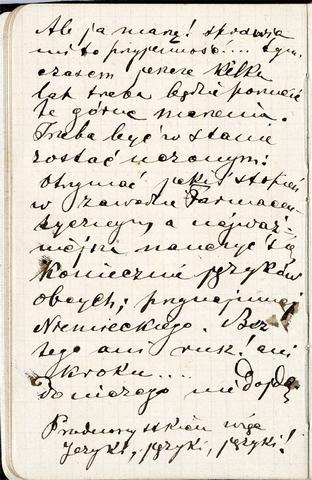 Ale ja marzę! sprawia
mi to przyjemność.... tym
czasem jeszcze kilka
lat trzeba będzie porzucić
te górne marzenia.
Trzeba być w stanie
zostać uczonym:
otrzymać jakiś stopień
w zawodzie Farmaceu-
tycznym, a najważ-
niejsze nauczyć się
koniecznie języków
obcych; przynajmniej
Niemieckiego. Bez
tego ani rusz! ani
kroku....
do niczego nie dojdę
więc
Języki, języki, języki!